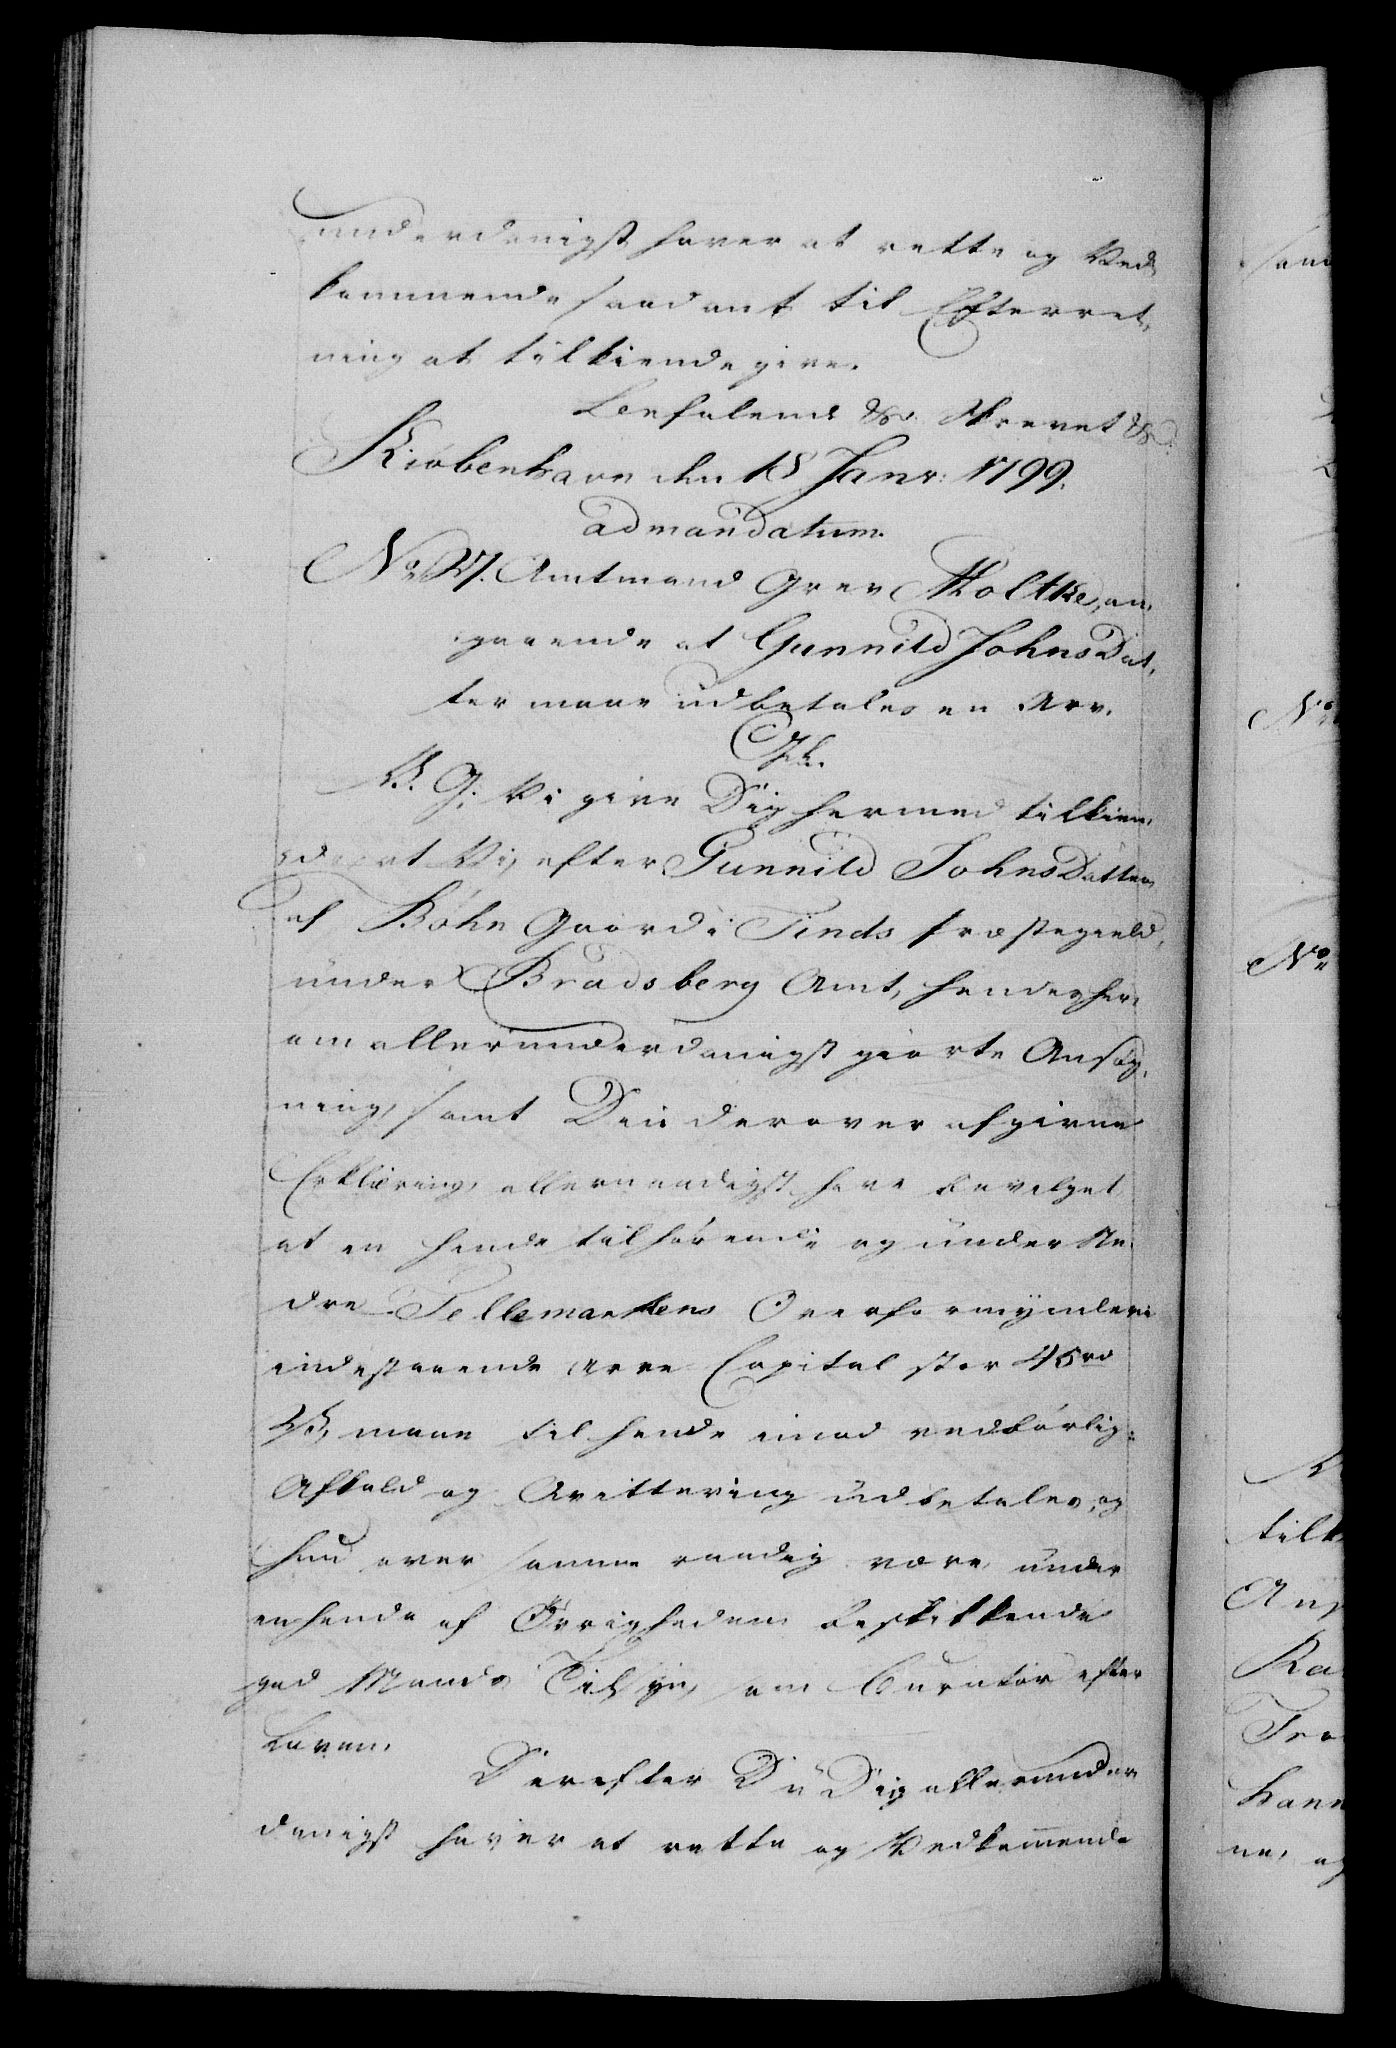 underdanigst haver at rette og Ved,
kommende saadant til Efterret,
ning at tilkiendegive.
Befalende &c. Skrevet &c:
Kiøbenhavn den 18 Janr: 1799.
ad mandatum.
No 27. Amtmand Grev Moltke, an,
gaaende at Gunnild JohnsDat,
ter maae udbetales en Arv.
C 7de.
V. G: Vi give Dig hermed tilkien,
de, at Vi, efter Gunnild JohnsDatter
af Bøhn Gaard i Tinds Præstegield,
under Bradsberg Amt, hendes her,
om allerunderdanigst giorte Ansøg,
ning, samt Din derover afgivne
Erklæring, allernaadigst have bevilget,
at en hende tilhørende og under Ne,
dre Tellemarkens Overformynderie
indestaaende Arve Capital stor 45 rd
maae til hende imod vedbørlig
Afkald og Qvittering udbetales, og
hun over samme raadig være, under
en hende af Øvrigheden beskikkende
god Mands Tilsyn, som Curator efter
Loven.
Derefter Du Dig allerunder
danigst haver at rette og Vedkommende